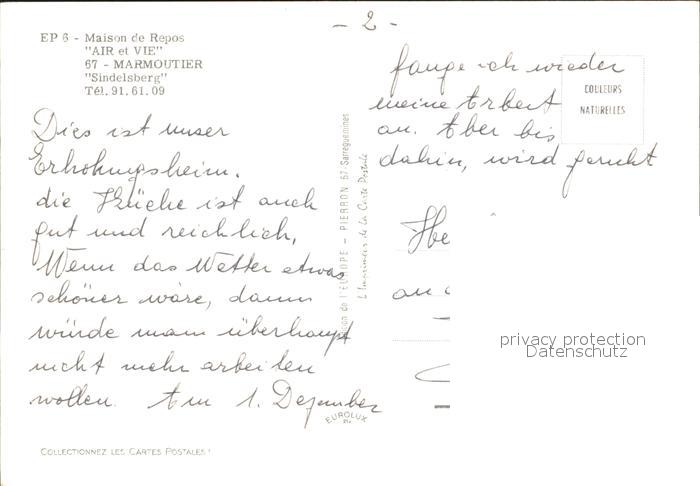 - 2 -
EP 6 - Maison de Repos
"AIR et VIE"
67 - MARMOUTIER
"Sindelsberg"
Tél. 91.61.09
Dies ist unser
Erholungsheim.
die Küche ist auch
gut und reichlich,
Wenn das Wetter etwas
schöner wäre, dann
würde man überhaupt
nicht mehr arbeiten
wollen. Am 1. Dezember
fange ich wieder
meine Arbeit
an. Aber bis
dahin, wird geruht
COULEURS
NATURELLES
de l'EUROPE - PIERRON 57-Sarreguemines
L'Imprimeur de la Carte Postale
an
privacy protection
Datenschutz
EUROLUX
COLLECTIONNEZ LES CARTES POSTALES !